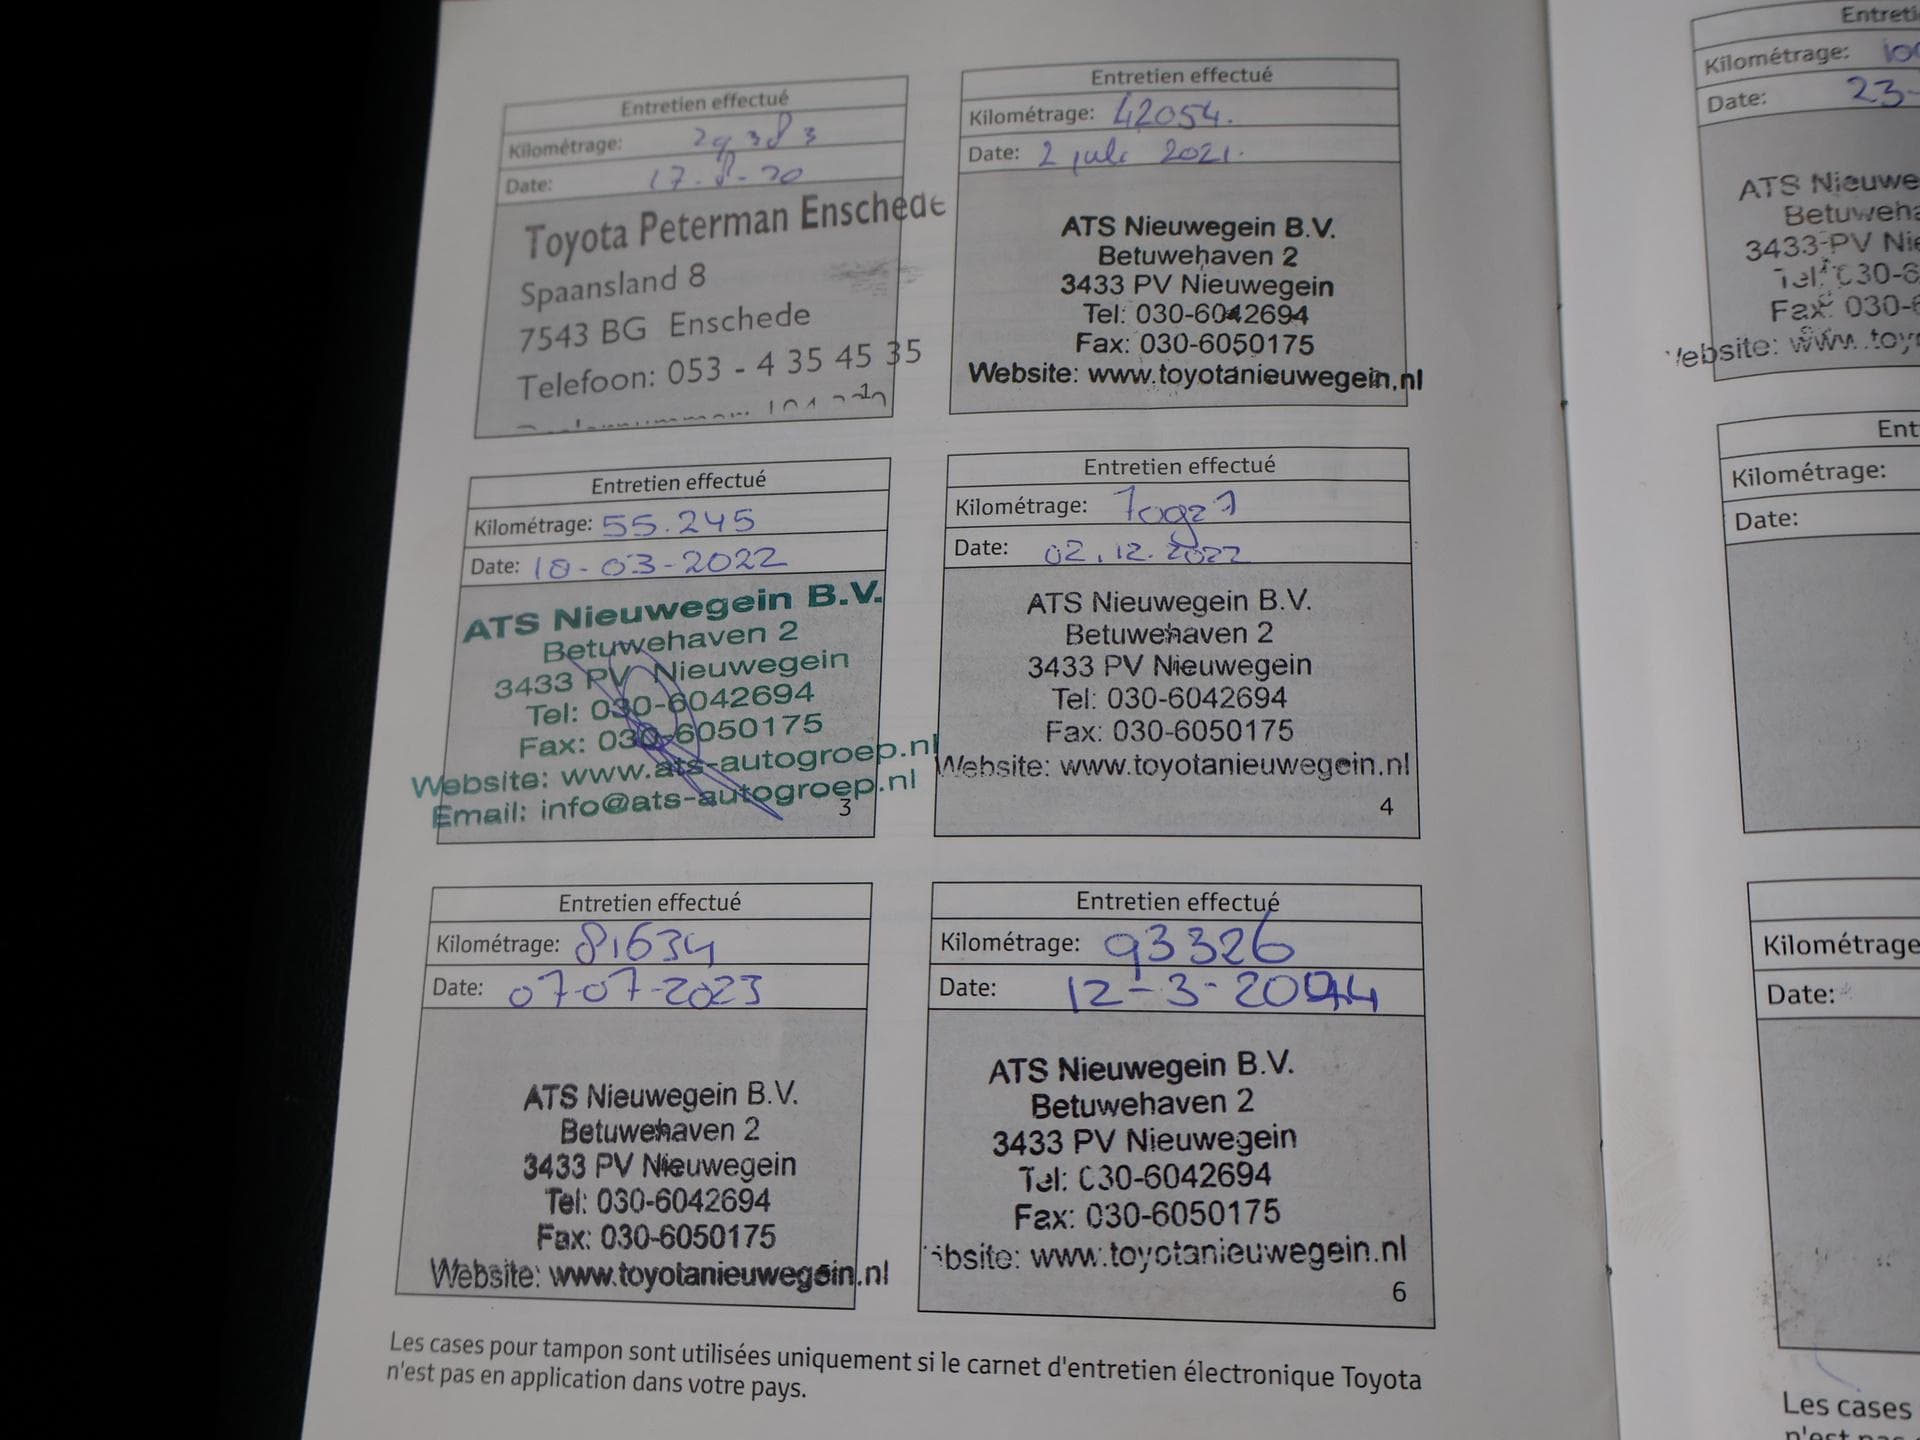 Entretien effectué
Kilométrage: 29383
Date: 17-8-20
Toyota Peterman Enschede
Spaansland 8
7543 BG Enschede
Telefoon: 053 - 4 35 45 35
1
Entretien effectué
Kilométrage: 42054.
Date: 2 juli 2021.
ATS Nieuwegein B.V.
Betuwehaven 2
3433 PV Nieuwegein
Tel: 030-6042694
Fax: 030-6050175
Website: www.toyotanieuwegein.nl
Entretien effectué
Kilométrage: 55.245
Date: 18-03-2022
ATS Nieuwegein B.V.
Betuwehaven 2
3433 PV Nieuwegein
Tel: 030-6042694
Fax: 030-6050175
Website: www.ats-autogroep.nl
Email: info@ats-autogroep.nl
3
Entretien effectué
Kilométrage:
Date: 02.12.2022
ATS Nieuwegein B.V.
Betuwehaven 2
3433 PV Nieuwegein
Tel: 030-6042694
Fax: 030-6050175
Website: www.toyotanieuwegein.nl
4
Entretien effectué
Kilométrage: 81634
Date: 07-07-2023
ATS Nieuwegein B.V.
Betuwehaven 2
3433 PV Nieuwegein
Tel: 030-6042694
Fax: 030-6050175
Website: www.toyotanieuwegein.nl
Entretien effectué
Kilométrage: 93326
Date: 12-3-
ATS Nieuwegein B.V.
Betuwehaven 2
3433 PV Nieuwegein
Tel: 030-6042694
Fax: 030-6050175
bsite: www.toyotanieuwegein.nl
6
Les cases pour tampon sont utilisées uniquement si le carnet d'entretien électronique Toyota
n'est pas en application dans votre pays.
Entreti
Kilométrage: 100
Date: 23-
ATS Nieuwe
Betuweha
3433 PV Nie
Tel: 030-6
Fax: 030-6
ebsite: www.toy
Ent
Kilométrage:
Date:
Kilométrage
Date:
Les cases
n'est pas